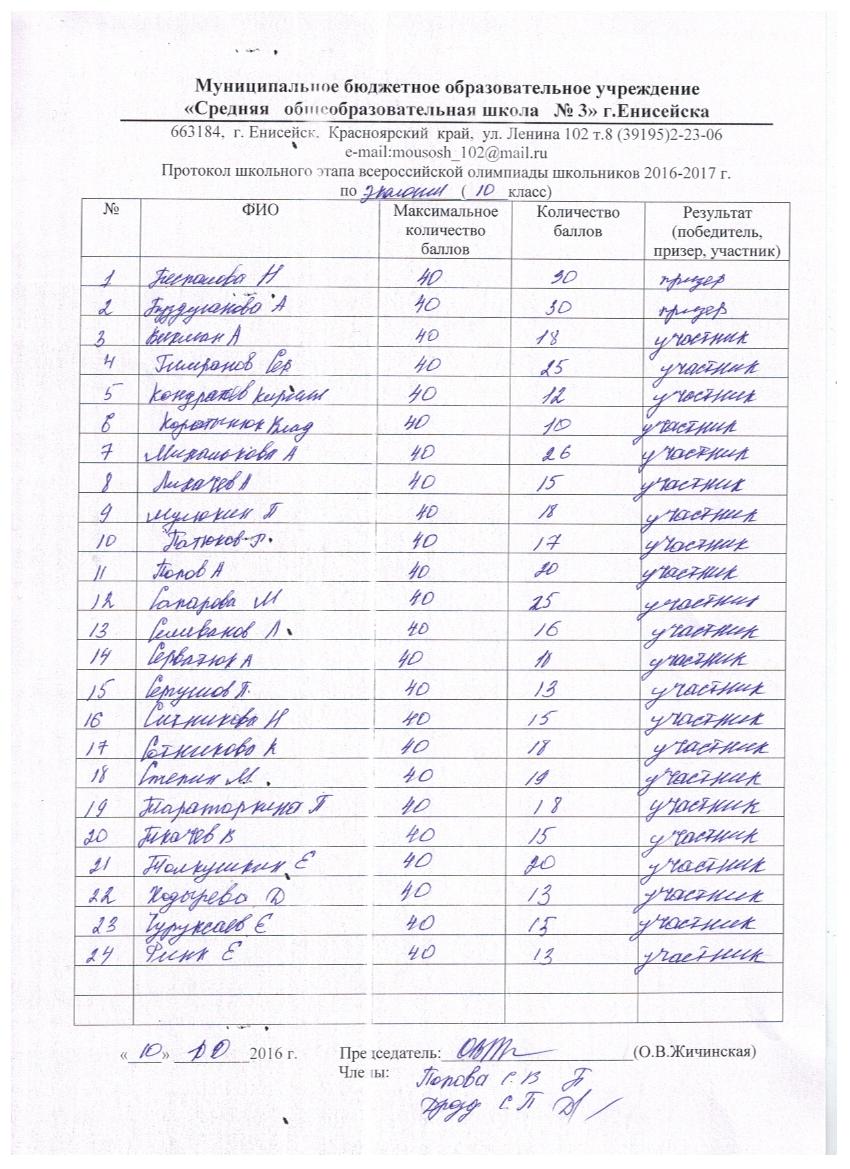 Муниципальное бюджетное образовательное учреждение
«Средняя общеобразовательная школа № 3» г.Енисейска
663184, г. Енисейск. Красноярский край, ул. Ленина 102 т.8 (39195)2-23-06
e-mail:mousosh_102@mail.ru
Протокол школьного этапа всероссийской олимпиады школьников 2016-2017 г.
по экологии (10 класс)
№ ФИО Максимальное количество баллов Количество баллов Результат (победитель, призер, участник)
1 Беспалова Н 40 30 призер
2 Буздуганова А 40 30 призер
3 Вихман А 40 18 участник
4 Гимранов Сер 40 25 участник
5 Кондратьев Кирилл 40 12 участник
6 Коротынюк Влад 40 10 участник
7 Михалькова А 40 26 участник
8 Лихачев А 40 15 участник
9 Мулюкин П 40 18 участник
10 Патюков П. 40 17 участник
11 Попов А 40 20 участник
12 Сапарова М 40 25 участник
13 Селиванов Л. 40 16 участник
14 Серватюк А 40 18 участник
15 Сергушов П. 40 13 участник
16 Ситникова Н 40 15 участник
17 Сотникова К 40 18 участник
18 Степин М. 40 19 участник
19 Тараторкина П 40 18 участник
20 Ткачев В 40 15 участник
21 Толкушкин Е 40 20 участник
22 Ходырева Д 40 13 участник
23 Чуруксаев Е 40 15 участник
24 Финк Е 40 13 участник
«10» 10 2016 г. Председатель: (О.В.Жичинская)
Члены: Попова С.В
Дрозд С.П